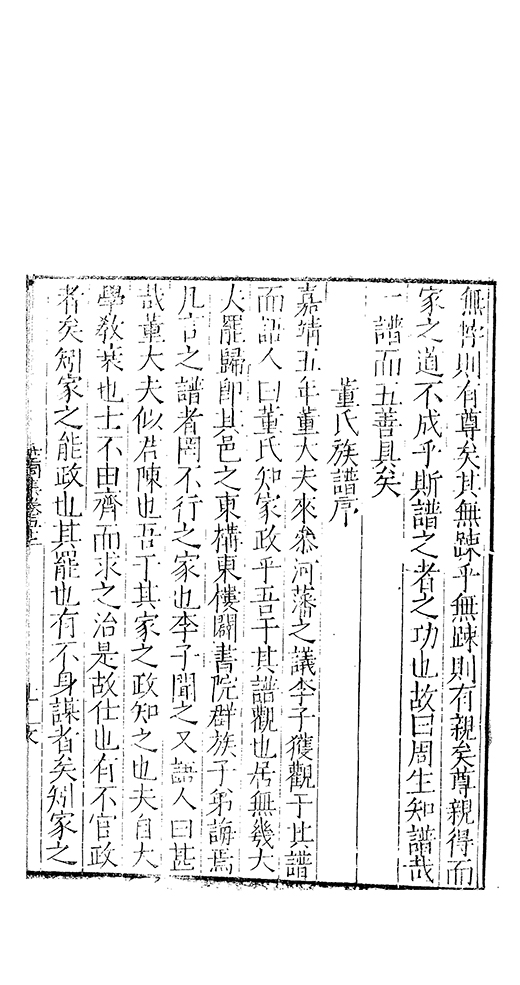 無悖則有尊矣其無踈乎無踈則有親矣尊親得而
家之道不成乎斯譜之者之功也故曰周生知譜哉
一譜而五善具矣
董氏族譜序
嘉靖五年董大夫來叅河藩之議李子獲觀于其譜
而語人曰董氏知家政乎吾于其譜觀也居無幾大
夫罷歸即其邑之東構東樓闢書院群族子弟誨焉
凡言之譜者罔不行之家也李子聞之又語人曰甚
哉董大夫似君陳也吾于其家之政知之也夫自大
學敎衰也士不由齊而求之治是故仕也有不官政
者矣矧家之能政也其罷也有不身謀者矣矧家之